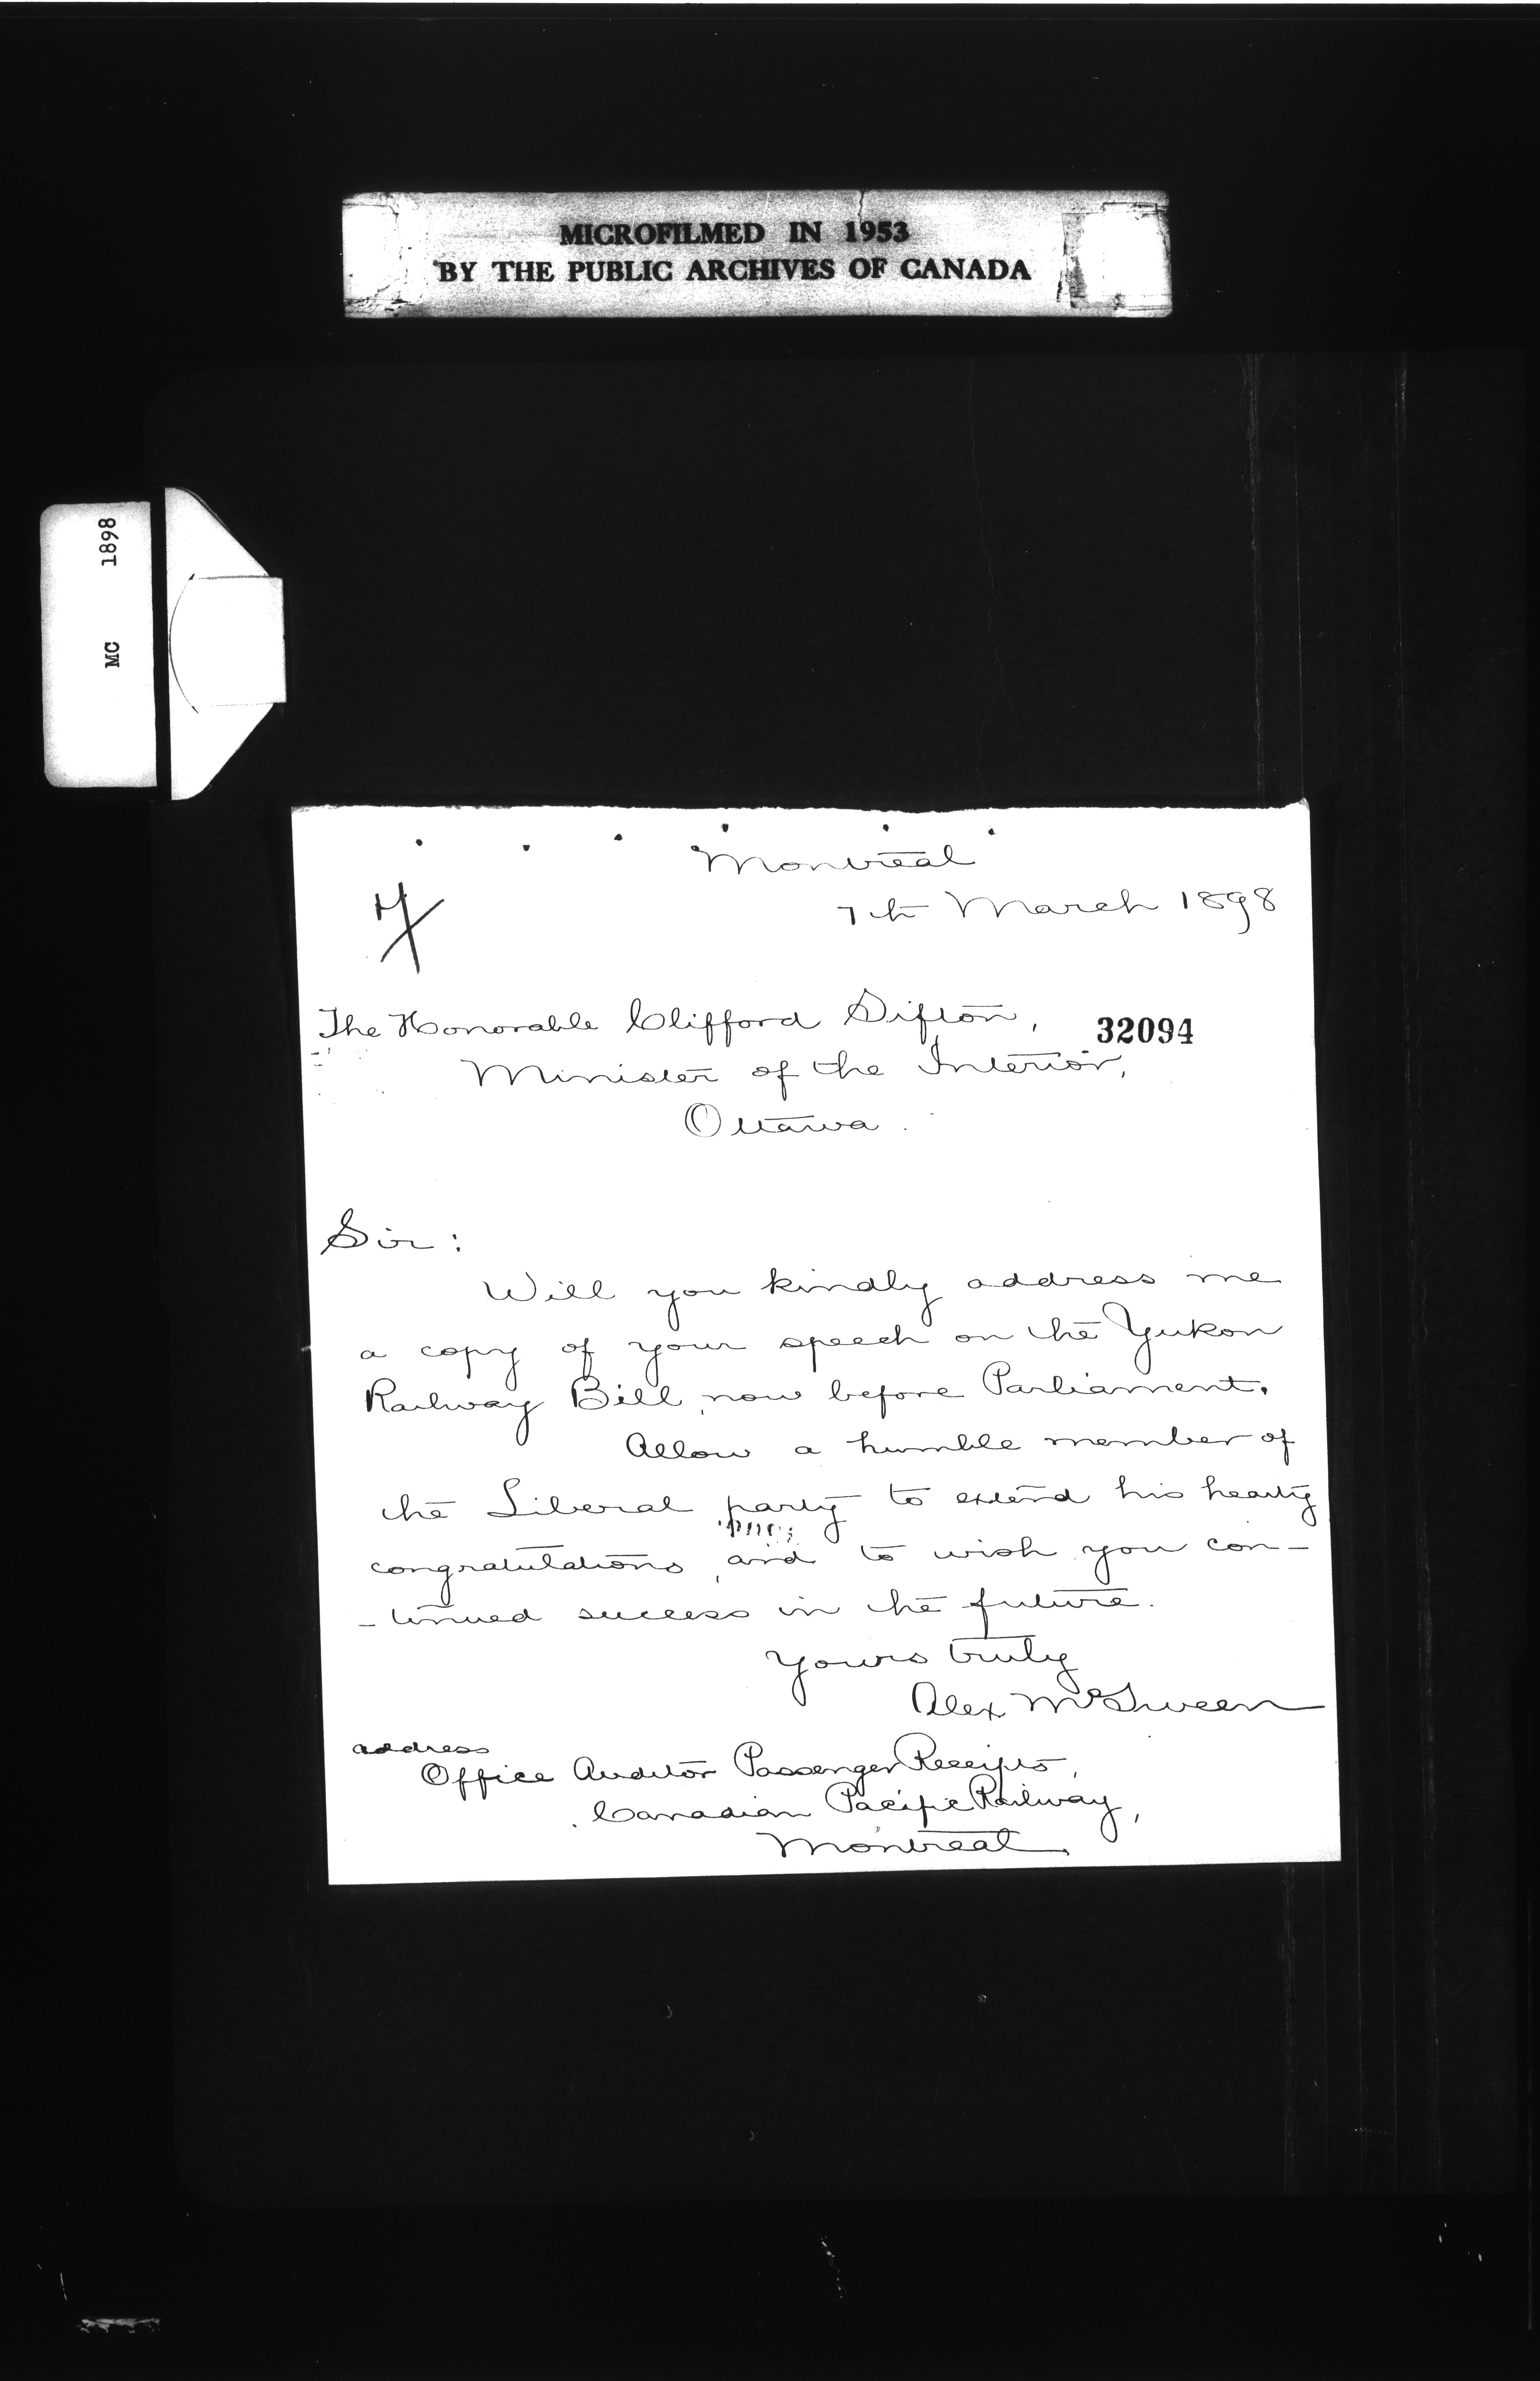 MICROFILMED IN 1953
BY THE PUBLIC ARCHIVES OF CANADA
MC 1898
Montreal
7th March 1898
The Honorable Clifford Sifton,
32094
Minister of the Interior,
Ottawa.
Sir:
Will you kindly address me
a copy of your speech on the Yukon
Railway Bill, now before Parliament.
Allow a humble member of
the Liberal party to extend his hearty
congratulations, and to wish you con-
-tinued success in the future.
Yours truly
Alex McSween
address
Office Auditor Passenger Receipts,
Canadian Pacific Railway,
Montreal.